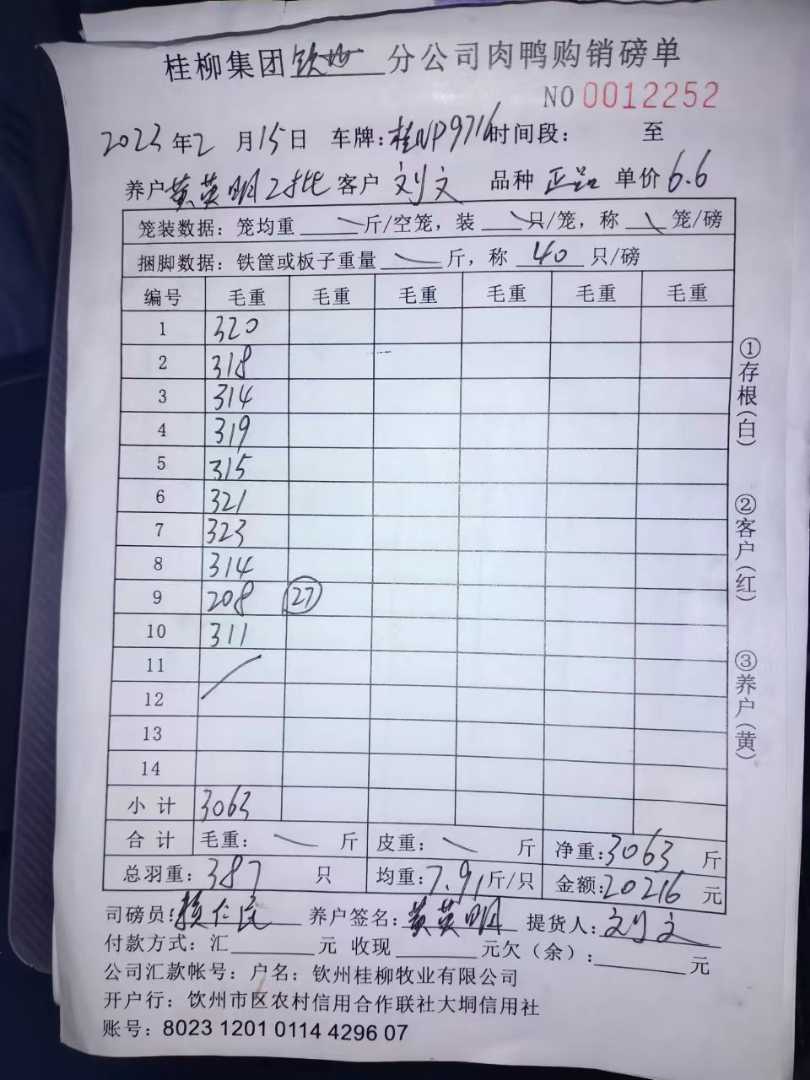 桂柳集团钦州分公司肉鸭购销磅单
NO 0012252
2023年2月15日 车牌:桂NP9716时间段: 至
养户黄英明2批 客户刘文 品种 正品 单价6.6
笼装数据: 笼均重 斤/空笼, 装 只/笼, 称 笼/磅
捆脚数据: 铁筐或板子重量 斤, 称 40 只/磅
编号 毛重 毛重 毛重 毛重 毛重 毛重
1 320
2 318
3 314
4 319
5 315
6 321
7 323
8 314
9 208 27
10 311
11
12
13
14
小计 3063
合计 毛重: 斤 皮重: 斤 净重:3063斤
总羽重:387 只 均重:7.91斤/只 金额:20216元
司磅员: 养户签名:黄英明 提货人:刘文
付款方式: 汇 元 收现 元欠(余): 元
公司汇款帐号: 户名: 钦州桂柳牧业有限公司
开户行: 饮州市区农村信用合作联社大垌信用社
账号: 8023 1201 0114 4296 07
①存根(白)
②客户(红)
③养户(黄)